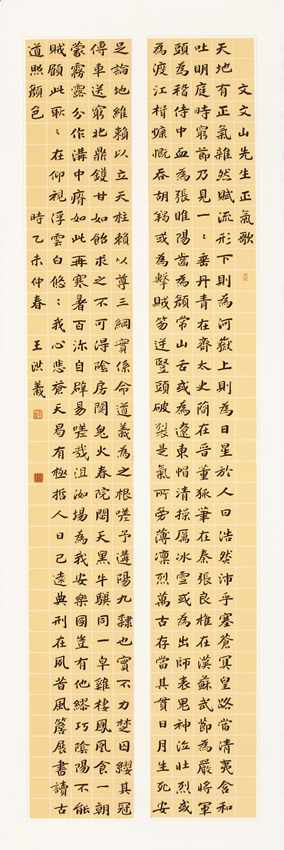 文文山先生正氣歌
天地有正氣雜然賦流形下則為河嶽上則為日星於人曰浩然沛乎塞蒼冥皇路當清夷含和
吐明庭時窮節乃見一〻垂丹青在齊太史簡在晉董狐筆在秦張良椎在漢蘇武節為嚴將軍
頭為嵇侍中血為張睢陽齒為顏常山舌或為遼東帽清操厲冰雪或為出師表鬼神泣壯烈或
為渡江楫慷慨吞胡羯或為擊賊笏逆豎頭破裂是氣所旁薄凜烈萬古存當其貫日月生死安
足論地維賴以立天柱賴以尊三綱實係命道義為之根嗟予遘陽九隸也實不力楚囚纓其冠
傳車送窮北鼎鑊甘如飴求之不可得陰房闃鬼火春院閟天黑牛驥同一皁雞棲鳳凰食一朝
蒙霧露分作溝中瘠如此再寒暑百沴自辟易嗟哉沮洳場為我安樂國豈有他繆巧陰陽不能
賊顧此耿〻在仰視浮雲白悠〻我心悲蒼天曷有極哲人日已遠典刑在夙昔風簷展書讀古
道照顏色 時乙未仲春 王洪義